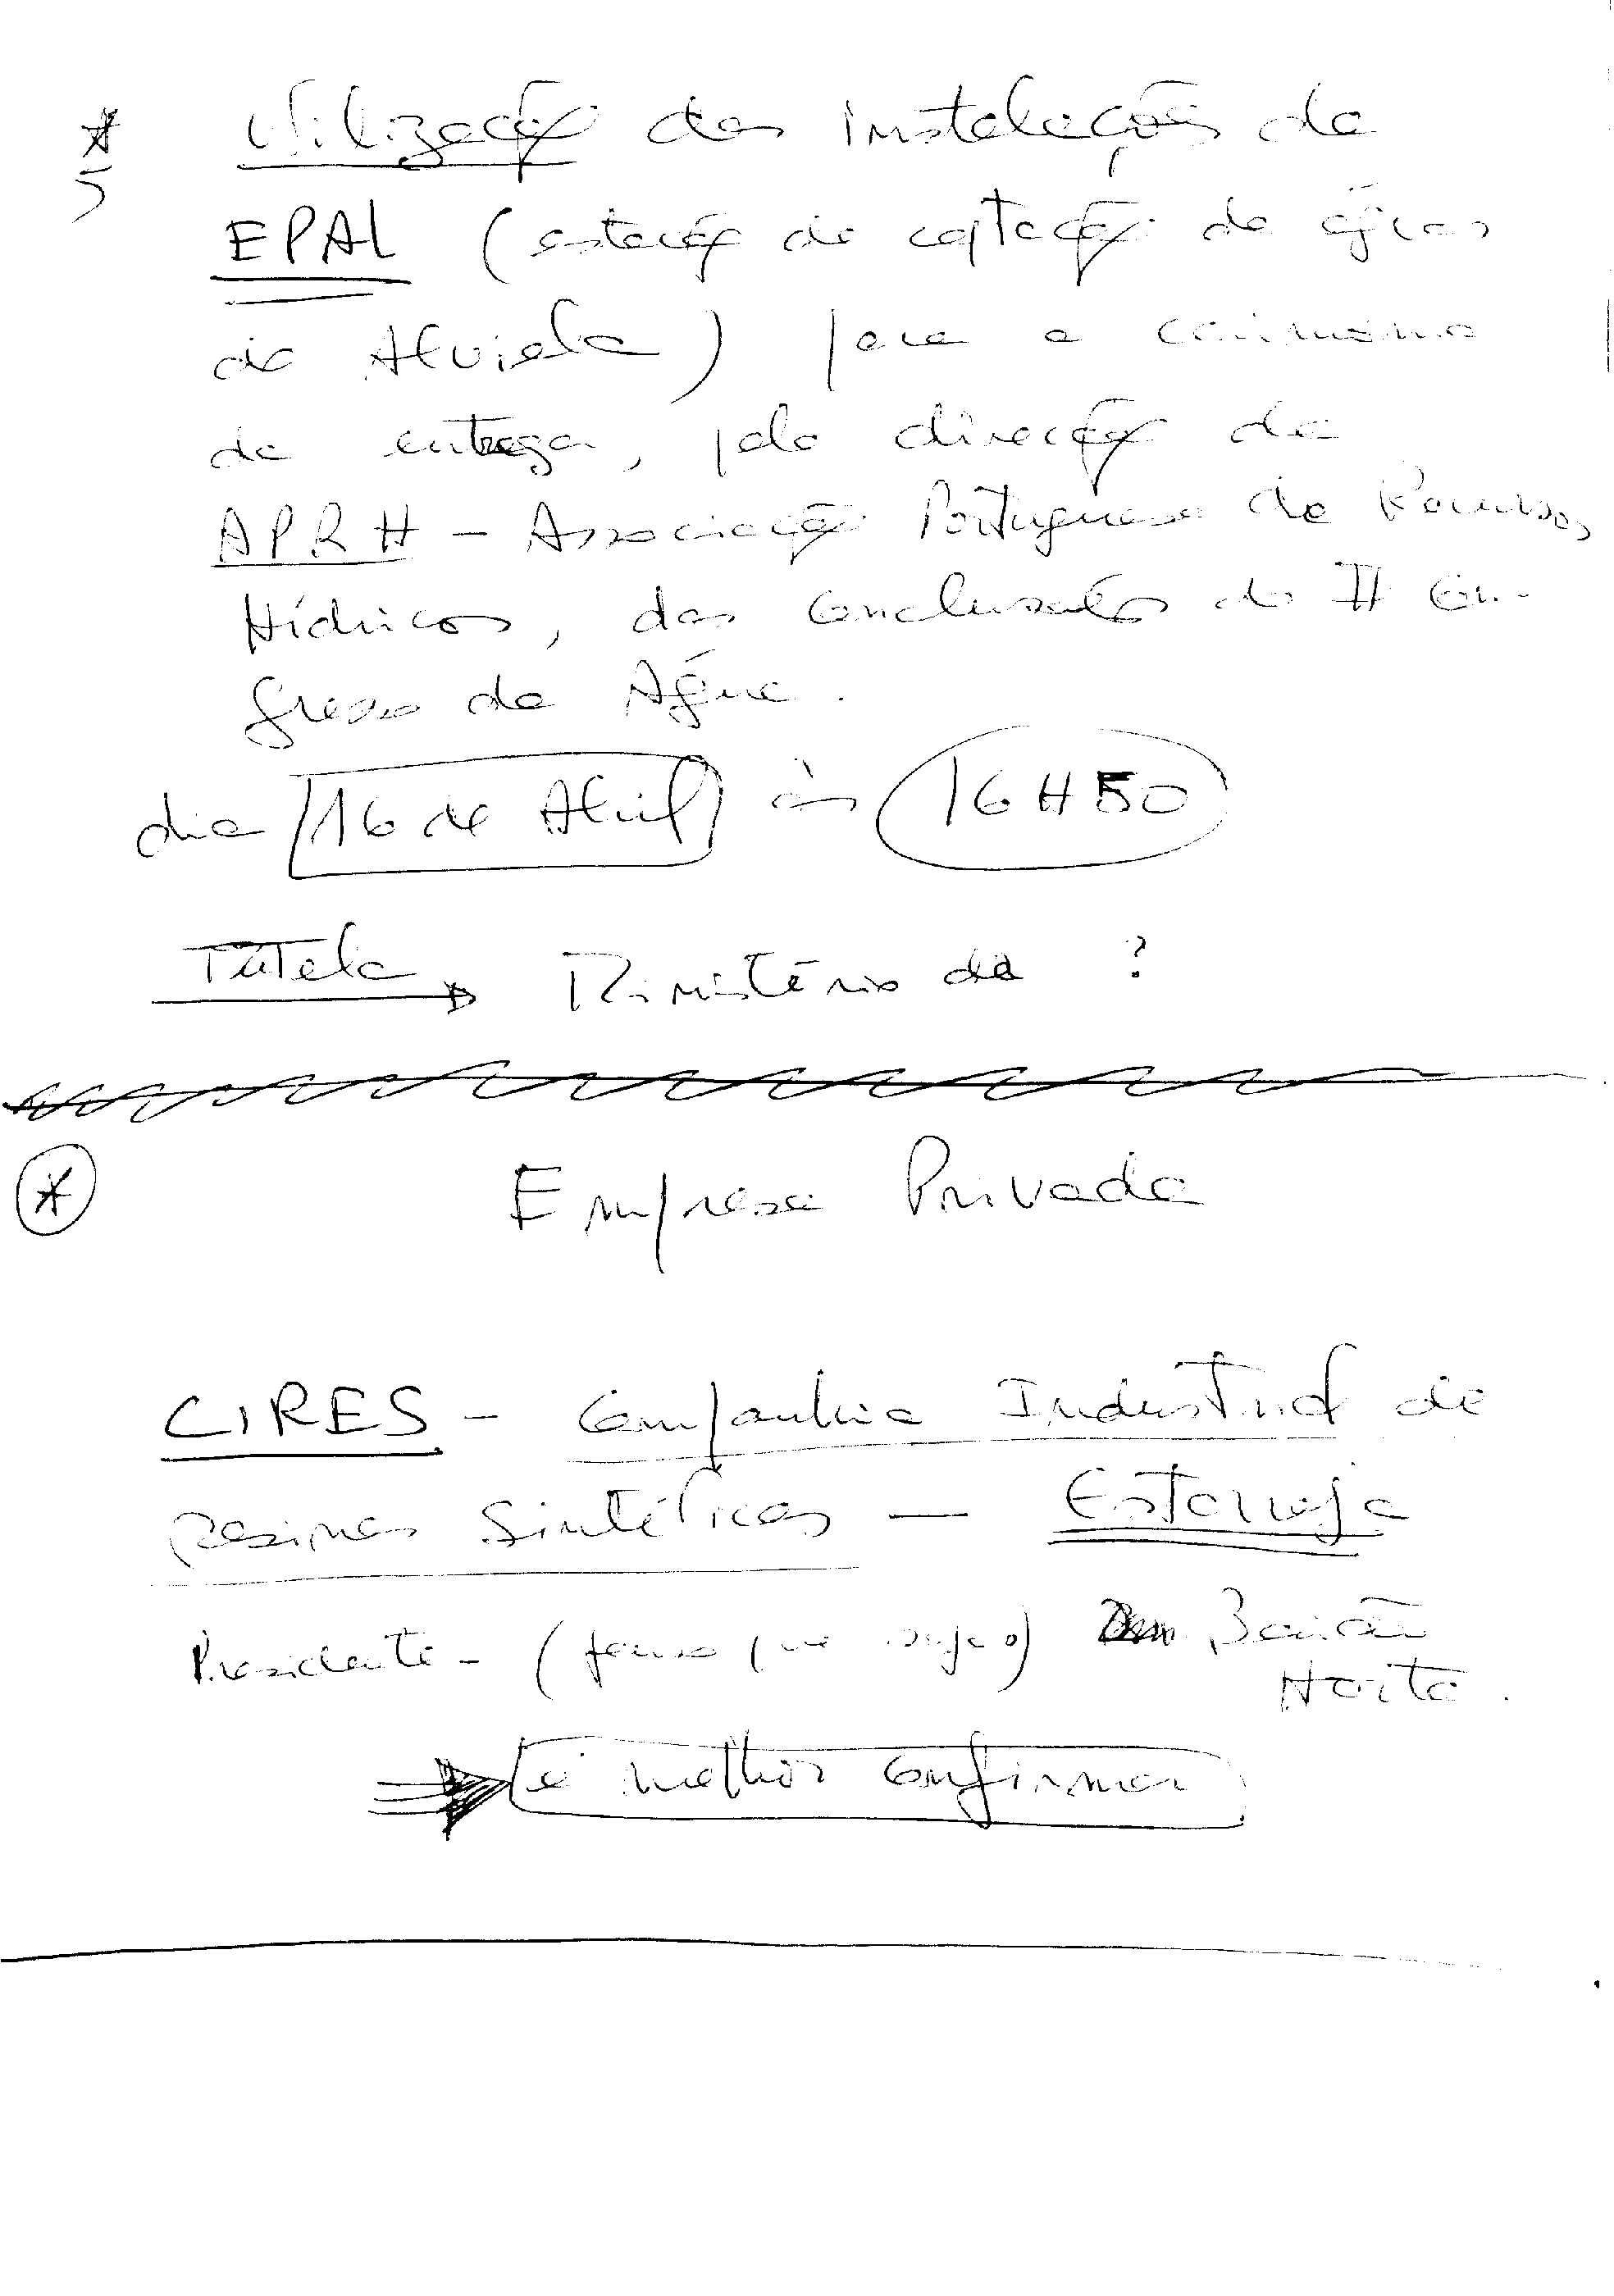 * Utilização das instalações da
5
EPAL (estação de captação de águas
do Alviela) para a cerimónia
de entrega, pela direcção da
APRH - Associação Portuguesa de Recursos
Hídricos, das conclusões do II Con-
gresso da Água.
dia 16 de Abril às 16H50
Tutela → Ministério da ?
* Empresa Privada
CIRES - Companhia Industrial de
Resinas Sintéticas — Estarreja
Presidente - (penso que seja o) Baião
Horta.
é melhor confirmar